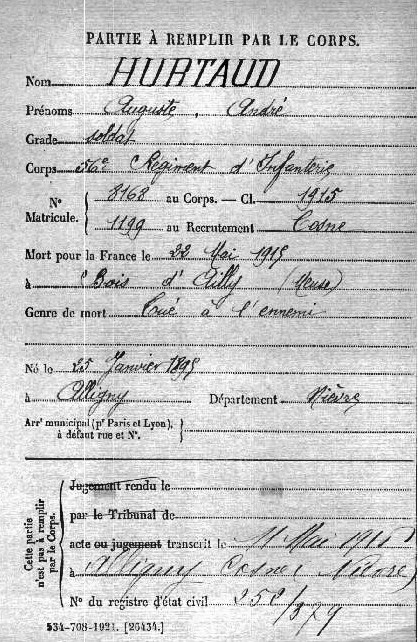 PARTIE À REMPLIR PAR LE CORPS.
Nom HURTAUD
Prénoms Auguste, André
Grade soldat
Corps 56e Régiment d'Infanterie
N° Matricule. 8168 au Corps. — Cl. 1915
1199 au Recrutement Cosne
Mort pour la France le 22 Mai 1915
à Bois d'Ailly (Meuse)
Genre de mort Tué à l'ennemi
Né le 25 Janvier 1895
à Alligny Département Nièvre
Arrt municipal (pr Paris et Lyon), à défaut rue et N°.
Cette partie n'est pas à remplir par le Corps.
Jugement rendu le
par le Tribunal de
acte ou jugement transcrit le 11 Mai 1916
à Alligny Cosne (Nièvre)
N° du registre d'état civil 358/379
534-708-1921. [26434.]